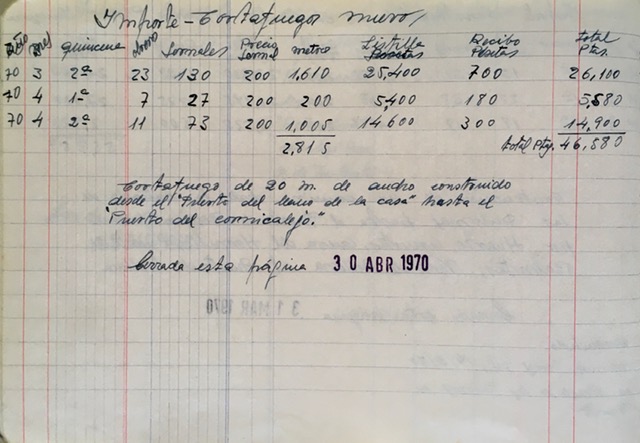 Importe - Cortafuegos nuevos
Año Mes quincena obrero Jornales Precio Jornal metros Listilla Pesetas Recibo Pesetas total Pts.
70 3 2ª 23 130 200 1,610 25,400 700 26,100
70 4 1ª 7 27 200 200 5,400 180 5,580
70 4 2ª 11 73 200 1,005 14,600 300 14,900
2,815 total Ptas. 46,580
Cortafuego de 20 m. de ancho construido
desde el "Puerto del de la casa" hasta el
"Puerto del cornicalejo."
Cerrada esta página 30 ABR 1970
31 MAR 1970